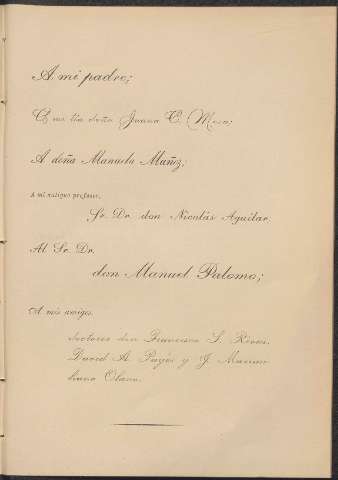 A mi padre;
A mi tía doña Juana C. Meza;
A doña Manuela Muñiz;
A mi antiguo profesor,
Sr. Dr. don Nicolás Aguilar.
Al Sr. Dr.
don Manuel Palomo;
A mis amigos,
doctores don Francisco S. Reves,
David A. Payés y J. Maximi
liano Olano.